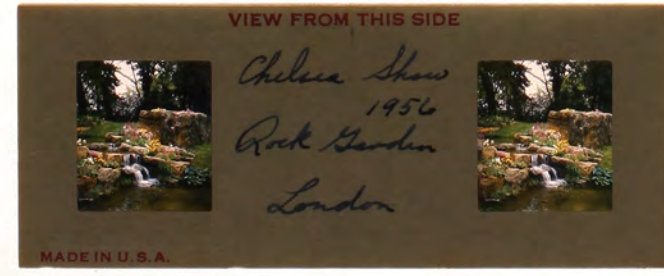 VIEW FROM THIS SIDE
Chelsea Show
1956
Rock Garden
London
MADE IN U.S.A.